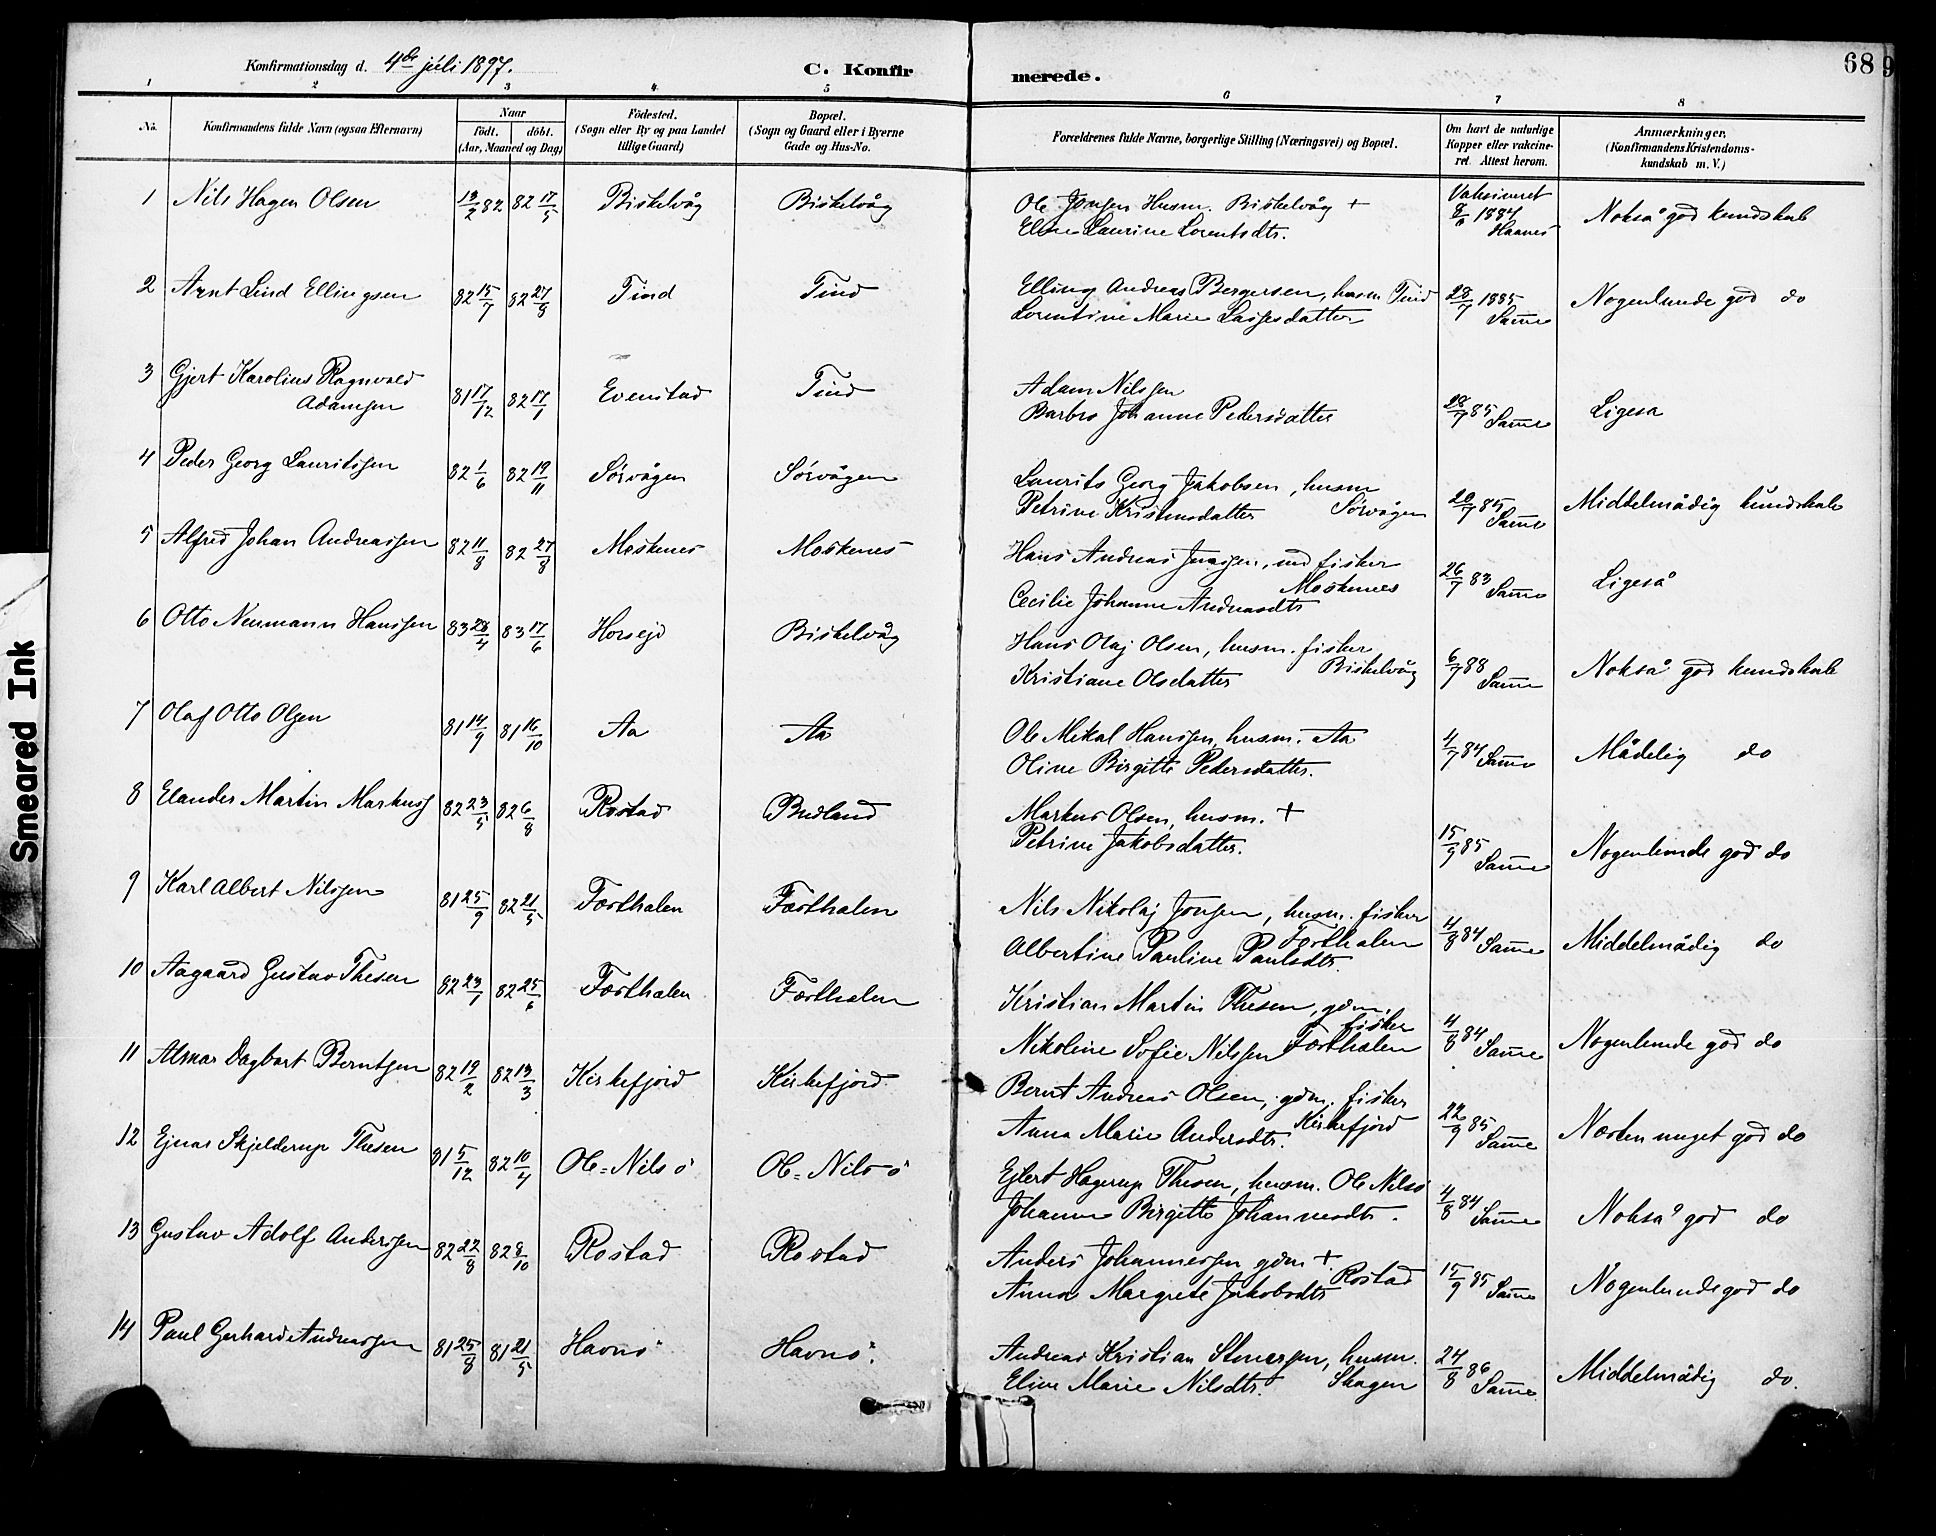 Konfirmationsdag d. 4de juli 1897.
C. Konfirmerede.
68
1 2 3 4 5 6 7 8
No. Konfirmandens fulde Navn (ogsaa Efternavn)
Naar
födt. döbt.
(Aar, Maaned og Dag)
Födested.
(Sogn eller By og paa Landet
tillige Gaard)
Bopæl.
(Sogn og Gaard eller i Byerne
Gade og Hus-No.
Forældrenes fulde Navne, borgerlige Stilling (Næringsvei) og Bopæl.
Om havt de naturlige
Kopper eller vakcine-
ret. Attest herom.
Anmærkninger.
(Konfirmandens Kristendoms-
kundskab m. V.)
1 Nils Hagen Olsen 13/2 82 82 17/5 Biskelvåg Biskelvåg
Ole Jensen Husm. Biskelvåg +
Elen Laurine Lorentsdtr.
Vaksineret
8/6 1884
Haanes
Nokså god kundskab
2 Arnt Lind Ellingsen 82 15/7 82 27/8 Tind Tind
Elling Andreas Bergersen, husm Tind
Lorentine Marie Lassesdatter
28/7 1885
Samme
Nogenlunde god do
3 Gjert Karolius Ragnvald
Adamsen 81 17/12 82 17/1 Evenstad Tind
Adam Nilssen
Barbro Johanne Pedersdatter
28/7 85 Samme
Ligesa
4 Peder Georg Lauritssen 82 1/6 82 19/11 Sörvågen Sörvågen
Laurits Georg Jakobsen, husm
Petrine Kristensdatter Sörvågen
20/7 85 Samme
Middelmådig kundskab
5 Alfred Johan Andreassen 82 11/8 82 27/8 Moskenes Moskenes
Hans Andreas Jenssen, fisker
Moskenes
Cecilie Johanne Andreasdtr
26/7 83 Samme
Ligeså
6 Otto Neumann Hanssen 83 28/4 83 17/6 Horsejd Biskelvåg
Hans Olaj Olsen, husm. fisker
Kristiane Olsdatter Biskelvåg
6/7 88 Samme
Nokså god kundskab
7 Olaf Otto Olsen 81 14/9 81 16/10 Aa Aa
Ole Mikal Hanssen, husm. Aa
Oline Birgitte Pedersdatter.
4/7 84 Samme
Mådelig do
8 Elander Martin Markuss 82 23/5 82 6/8 Rostad Budland
Markus Olsen, husm. +
Petrine Jakobsdatter.
15/9 85 Samme
Nogenlunde god do
9 Karl Albert Nilssen 81 25/9 82 21/5 Forthalen Forthalen
Nils Nikolaj Jonsen, husm. fisker
Albertine Pauline Paulsdtr. Forthalen
4/8 84 Samme
Middelmådig do
10 Aagaard Gustav Thesen 82 23/1 82 25/6 Forthalen Forthalen
Kristian Martin Thesen, gdm.
fisker
Nikoline Sofie Nilssen Forthalen
4/8 84 Samme
Nogenlunde god do
11 Almar Dagbart Berntsen 82 19/2 82 13/3 Kirkefjord Kirkefjord.
Bernt Andreas Olsen, gdm. fisker
Anna Marie Andersdtr. Kirkefjord
22/9 85 Samme
Næsten meget god do
12 Ejnar Skjelderup Thesen 81 5/12 82 10/4 Ole=Nilsö Ole=Nilsö
Ejlert Hagerup Thesen, husm. Ole Nilsö
Johanna Birgitte Johannesdtr.
4/8 84 Samme
Nokså god do
13 Gustav Adolf Anderssen 82 22/8 82 8/10 Rostad Rostad
Anders Johannessen gdm +
Anna Margrete Jakobsdtr Rostad
15/9 85 Samme
Nogenlunde god do
14 Paul Gerhard Andreassen 81 25/8 81 21/5 Havnö Havnö.
Andreas Kristian Stenersen, husm.
Eline Marie Nilsdtr. Skagen
24/8 86 Samme
Middelmådig do.
Smeared Ink